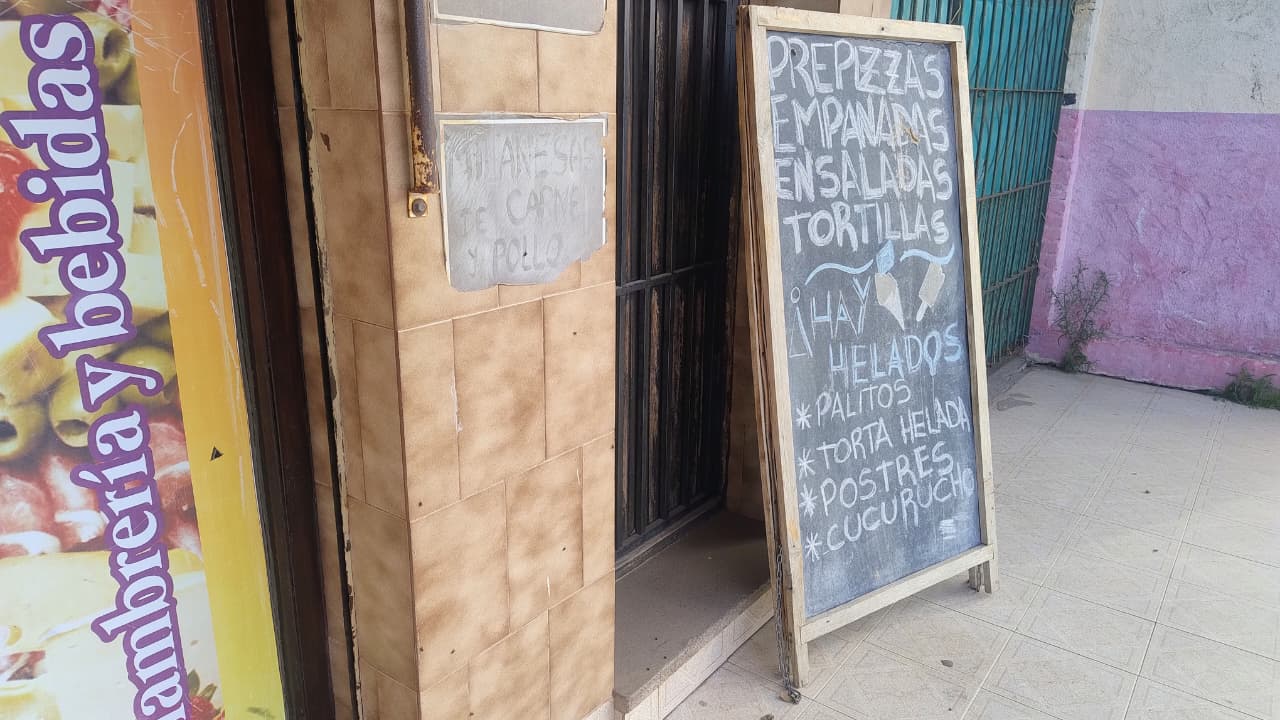 fiambrería y bebidas
MILANESAS
DE CARNE
Y POLLO
PREPIZZAS
EMPANADAS
ENSALADAS
TORTILLAS
¡HAY
HELADOS
*PALITOS
*TORTA HELADA
*POSTRES
*CUCURUCHO